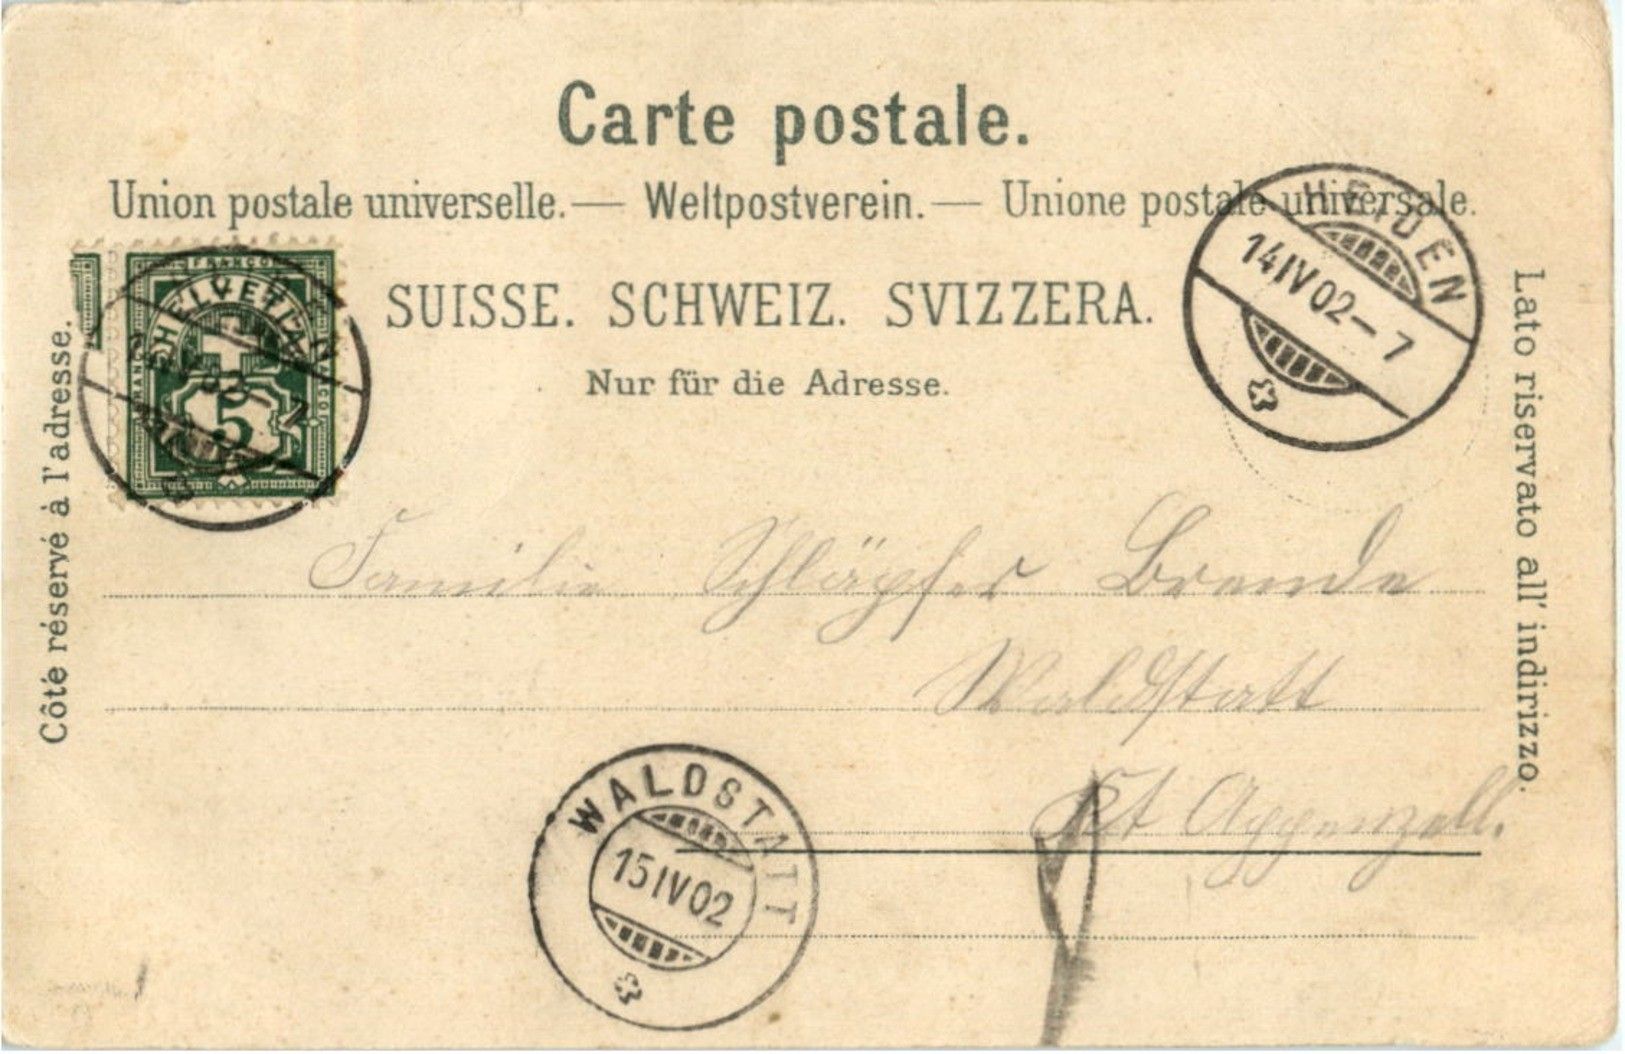 Carte postale.
Union postale universelle. — Weltpostverein. — Unione postale universale.
SUISSE. SCHWEIZ. SVIZZERA.
Nur für die Adresse.
Côté réservé à l'adresse.
Lato riservato all' indirizzo.
FRANCO
HELVETIA
FRANCO
FRANCO
5
HEIDEN
14 IV 02 – 7
Familie Schläpfer
Waldstatt
Kt Appenzell.
WALDSTATT
15 IV 02